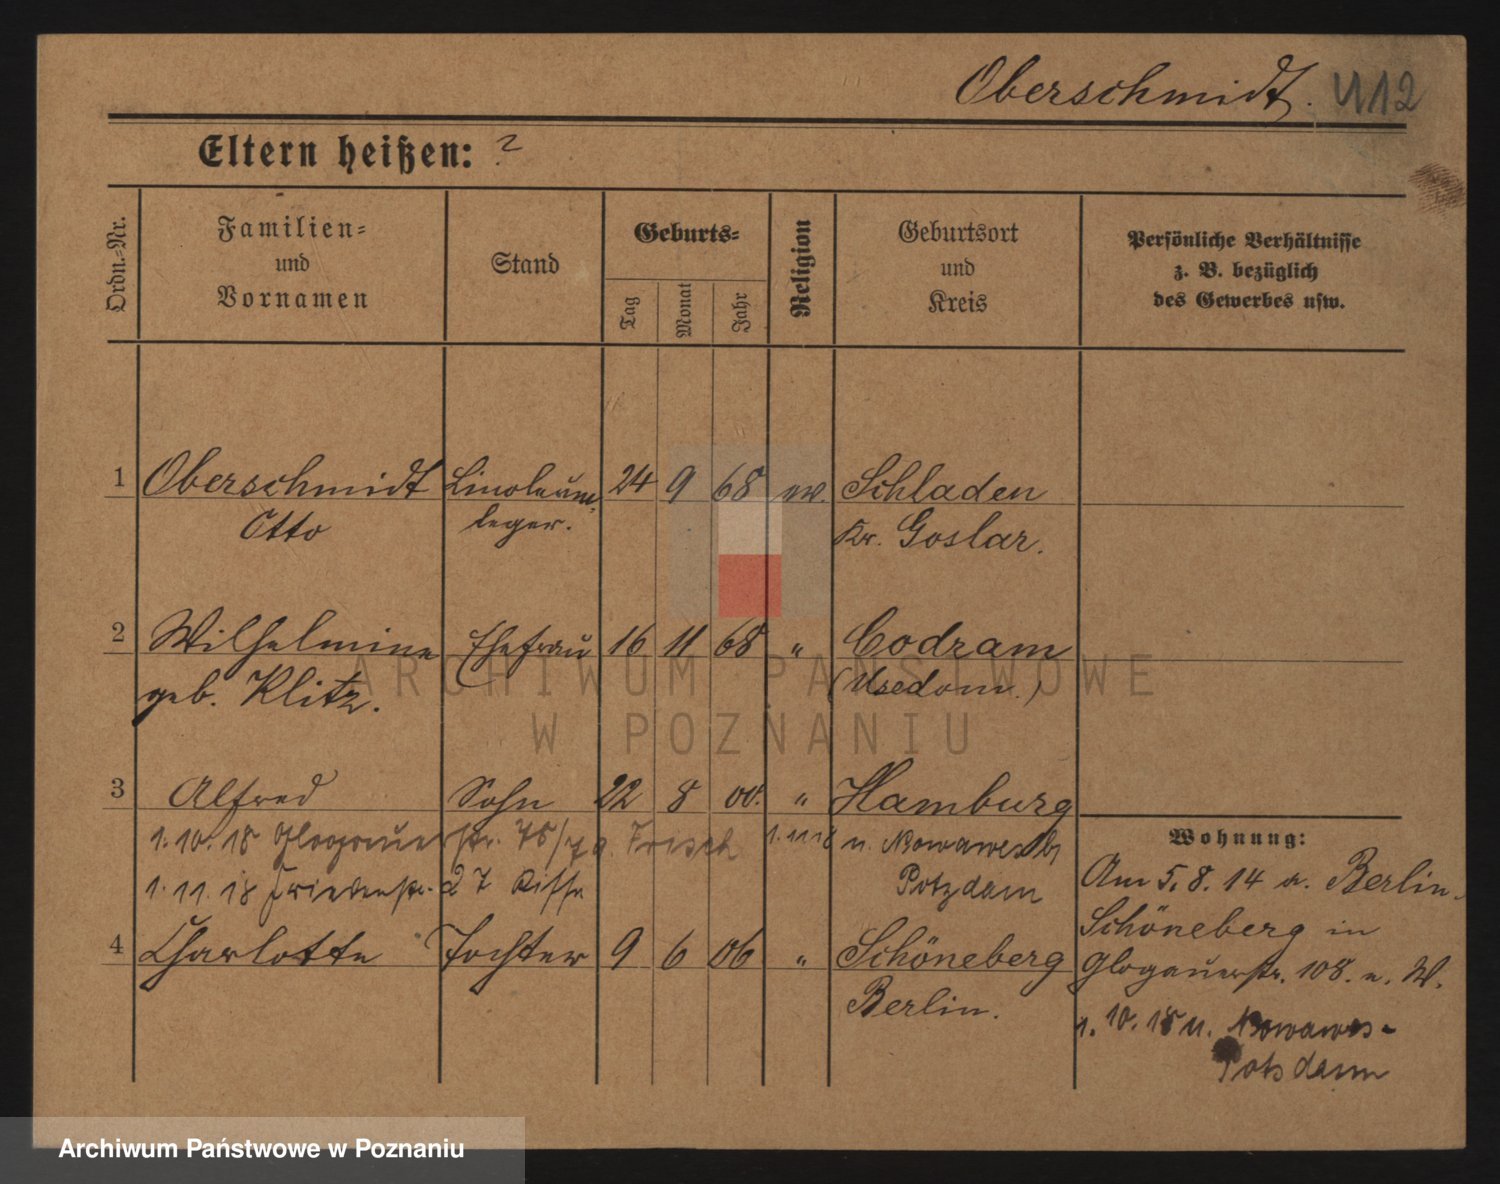 Oberschmidt. 412
Eltern heißen: ?
Ordn.=Nr.
Familien=
und
Vornamen
Stand
Geburts=
Tag
Monat
Jahr
Religion
Geburtsort
und
Kreis
Persönliche Verhältnisse
z. B. bezüglich
des Gewerbes usw.
1 Oberschmidt Linoleum- 24 9 68 ev. Schladen
Otto leger. Kr. Goslar.
2 Wilhelmine Ehefrau 16 11 68 " Codram
geb. Klitz. (Usedom.)
3 Alfred Sohn 22 8 00. " Hamburg
1.10.18 Glogauerstr. 75/7 a. Frisch 1.11 18 n. Nowawes b/
Potzdam
1.11.18 Friedenstr. 27
4 Charlotte Tochter 9 6 06 " Schöneberg
Berlin.
Wohnung:
Am 5.8.14 a. Berlin-
Schöneberg in
Glogauerstr. 108. n. W.
1.10.18 n. Nowawes-
Potsdamm
ARCHIWUM PAŃSTWOWE
W POZNANIU
Archiwum Państwowe w Poznaniu